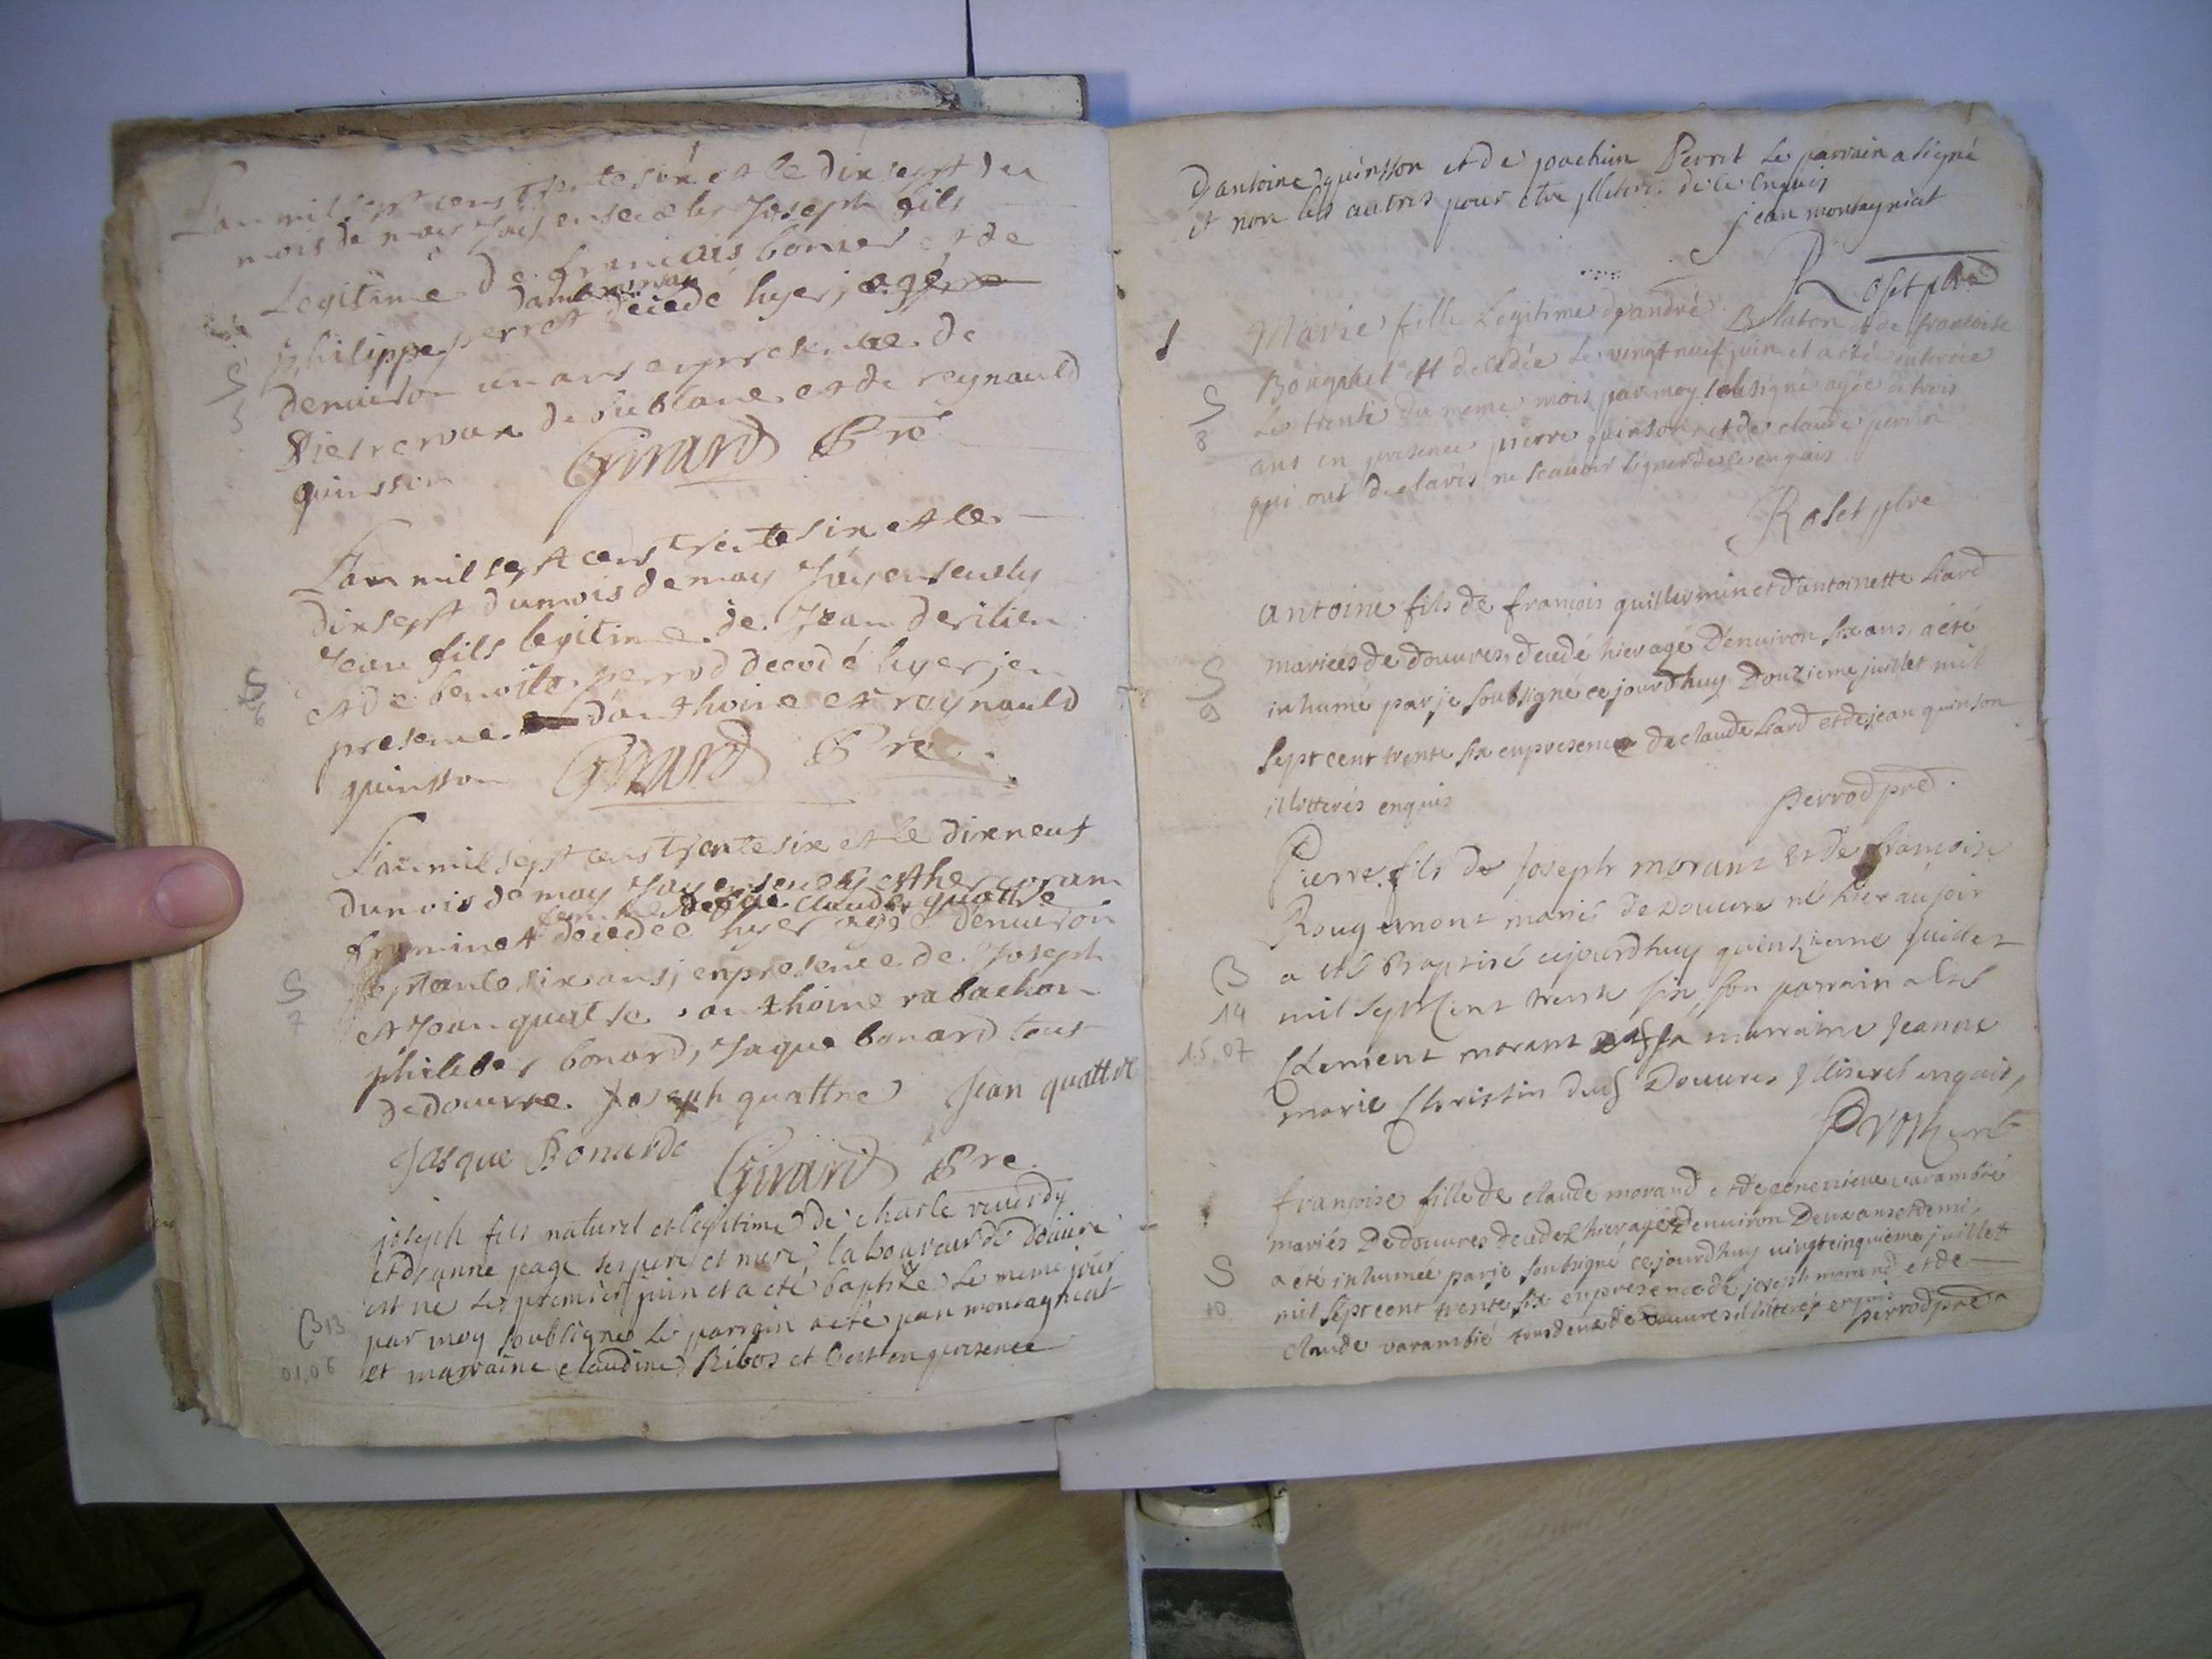 L'an mil sept cens trente six et le dix sept du
mois de may J'ay ensevelis Joseph fils
Legitime de francois bonier et de
dambournay
philippe perret décédé hyer, agé
S
5
denuiron un ans en presence de
de bublane et de reynauld
quinsson Girard Pre
L'an mil sept cens trente six et le
dix sept du mois de may J'ay ensevely
Jean fils legitime de Jean derilieu
S
6
et de benoite perrod decedé hyer, en
presence d'anthoine et reynauld
quinsson Girard Pre
L'an mil sept cens trente six et le dix neuf
du mois de may J'ay ensevely esther
femme de claude quattre
decedée hyer agée denuiron
S
7
septante six ans, en presence de Joseph
et Jean quattre, anthoine rabachon
phileber bonard, Jaque bonard tous
de douvre. Joseph quattre Jean quattre
Jasque Bonardo Girard Pre.
joseph fils naturel et legitime de charle reverdy
et d'anne page ses pere et mere, laboureur de douvre
est né Le premier juin et a eté baptisé Le meme jour
B 13
par moy soubsigné Le parrain a eté jean montagneat
01.06
et marraine claudine Ribos et c'est en presence
D'antoine quinsson et de joachim Perret Le parrain a signé
et non les autres pour etre illeterés de ce Enquis
jean montagniat
Roset ptre
Marie fille Legitime d'andré Blabon et de francoise
Bouquet est decedée Le vingt neuf juin et a eté enterrée
S
8
Le trente du meme mois par moy soubsigné agée de trois
ans en presence pierre quinson et de claude perrin
qui ont declarés ne scavoir signer de ce enquis
Roset ptre
antoine fils de francois guillermin et d'antoinette Liard
mariés de douvres, decedé hier agé D'enuiron six ans, a eté
S
9
inhumé par je soubsigné ce jourd'huy Douzieme juillet mil
sept cent trente six en presence de claude Liard et de jean quinson
illitterés enquis perrod pre.
Pierre fils de Joseph morant Et de francoise
Rougemont mariés de Douvre né hier au soir
B
a eté Baptisé cejourdhuy quinzieme Juillet
14
mil sept Cent trente six, son parrain a Eté
15.07
Clement morant et sa marraine Jeanne
marie Christin dud Douvres Illiterés enquis,
francoise fille de claude morand et de genevieve varambié
mariés De douvres decedée hier agée d'enuiron Deux ans et demi,
S
a eté inhumée par je soubsigné ce jourdhuy vingt cinquieme juillet
10
mil sept cent trente six en presence de joseph morand et de
claude varambié tous deux de douvres illitterés enquis perrod pre